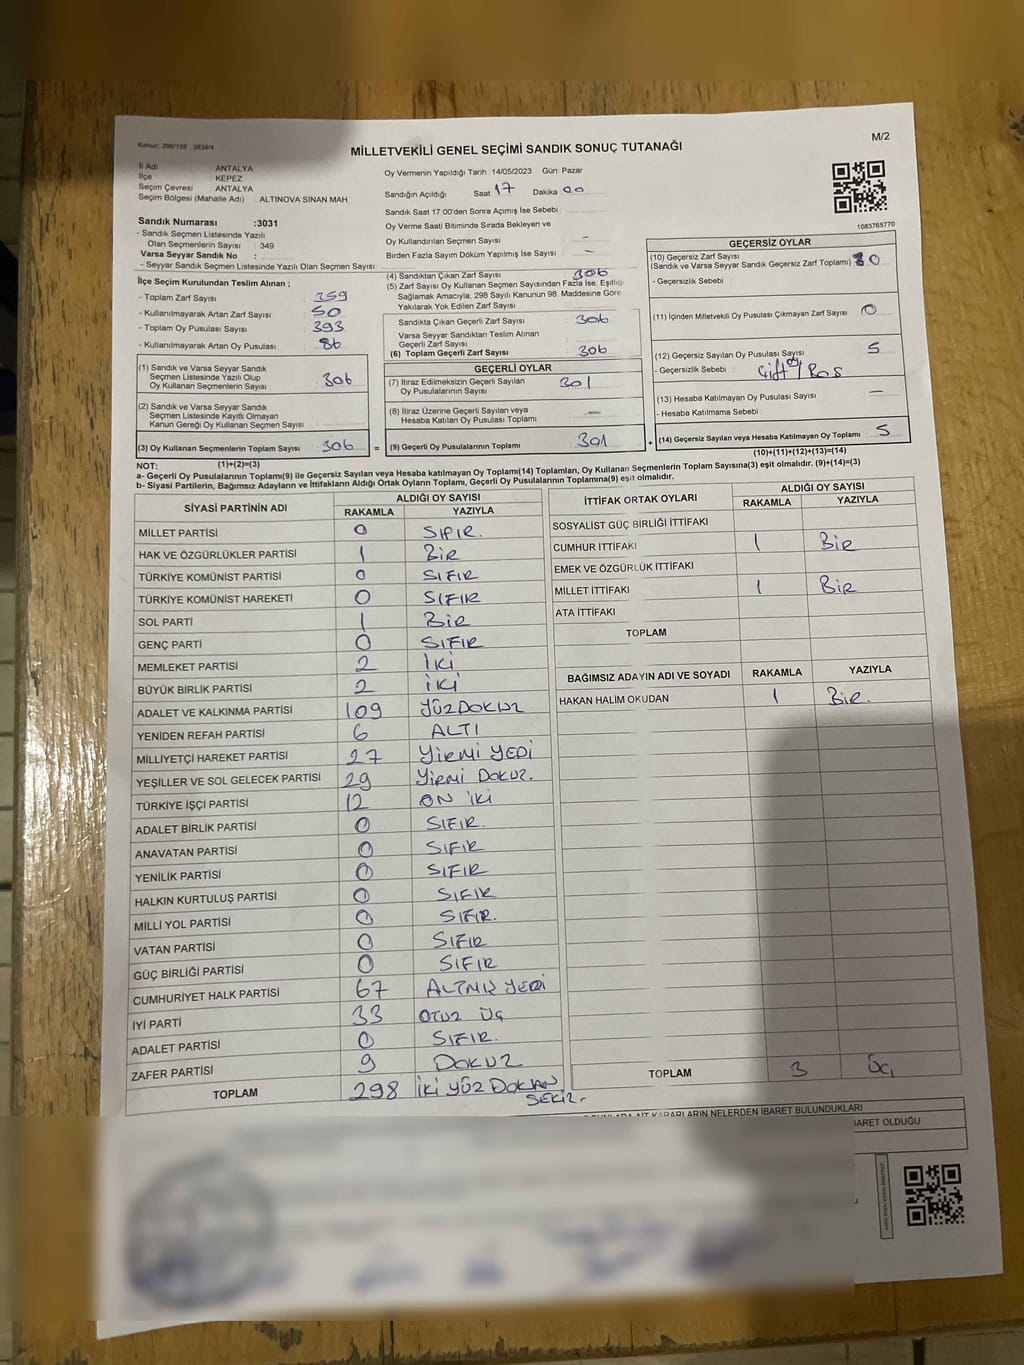 Kanun: 298/105 , 2839/4
M/2
MİLLETVEKİLİ GENEL SEÇİMİ SANDIK SONUÇ TUTANAĞI
İl Adı : ANTALYA
İlçe : KEPEZ
Seçim Çevresi : ANTALYA
Seçim Bölgesi (Mahalle Adı) : ALTINOVA SİNAN MAH.
Sandık Numarası :3031
- Sandık Seçmen Listesinde Yazılı
Olan Seçmenlerin Sayısı : 349
Varsa Seyyar Sandık No :
- Seyyar Sandık Seçmen Listesinde Yazılı Olan Seçmen Sayısı :
İlçe Seçim Kurulundan Teslim Alınan ;
- Toplam Zarf Sayısı : 359
- Kullanılmayarak Artan Zarf Sayısı : 50
- Toplam Oy Pusulası Sayısı : 393
- Kullanılmayarak Artan Oy Pusulası : 86
(1) Sandık ve Varsa Seyyar Sandık
Seçmen Listesinde Yazılı Olup
Oy Kullanan Seçmenlerin Sayısı 306
(2) Sandık ve Varsa Seyyar Sandık
Seçmen Listesinde Kayıtlı Olmayan
Kanun Gereği Oy Kullanan Seçmen Sayısı
(3) Oy Kullanan Seçmenlerin Toplam Sayısı 306
(1)+(2)=(3)
Oy Vermenin Yapıldığı Tarih : 14/05/2023 Gün: Pazar
Sandığın Açıldığı Saat 17 Dakika 00
Sandık Saat 17:00'den Sonra Açımış İse Sebebi :
Oy Verme Saati Bitiminde Sırada Bekleyen ve
Oy Kullandırılan Seçmen Sayısı : -
Birden Fazla Sayım Döküm Yapılmış İse Sayısı : -
(4) Sandıktan Çıkan Zarf Sayısı : 306
(5) Zarf Sayısı Oy Kullanan Seçmen Sayısından Fazla İse, Eşitliği
Sağlamak Amacıyla, 298 Sayılı Kanunun 98. Maddesine Göre
Yakılarak Yok Edilen Zarf Sayısı :
Sandıkta Çıkan Geçerli Zarf Sayısı : 306
Varsa Seyyar Sandıktan Teslim Alınan
Geçerli Zarf Sayısı :
(6) Toplam Geçerli Zarf Sayısı : 306
GEÇERLİ OYLAR
(7) İtiraz Edilmeksizin Geçerli Sayılan
Oy Pusulalarının Sayısı : 301
(8) İtiraz Üzerine Geçerli Sayılan veya
Hesaba Katılan Oy Pusulası Toplamı : -
= (9) Geçerli Oy Pusulalarının Toplamı 301
1083765770
GEÇERSİZ OYLAR
(10) Geçersiz Zarf Sayısı
(Sandık ve Varsa Seyyar Sandık Geçersiz Zarf Toplamı) : 0
- Geçersizlik Sebebi :
(11) İçinden Milletvekili Oy Pusulası Çıkmayan Zarf Sayısı : 0
(12) Geçersiz Sayılan Oy Pusulası Sayısı : 5
- Geçersizlik Sebebi : Çift oy/Boş
(13) Hesaba Katılmayan Oy Pusulası Sayısı : -
- Hesaba Katılmama Sebebi :
+ (14) Geçersiz Sayılan veya Hesaba Katılmayan Oy Toplamı : 5
(10)+(11)+(12)+(13)=(14)
NOT:
a- Geçerli Oy Pusulalarının Toplamı(9) ile Geçersiz Sayılan veya Hesaba katılmayan Oy Toplamı(14) Toplamları, Oy Kullanan Seçmenlerin Toplam Sayısına(3) eşit olmalıdır. (9)+(14)=(3)
b- Siyasi Partilerin, Bağımsız Adayların ve İttifakların Aldığı Ortak Oyların Toplamı, Geçerli Oy Pusulalarının Toplamına(9) eşit olmalıdır.
SİYASİ PARTİNİN ADI ALDIĞI OY SAYISI
RAKAMLA YAZIYLA
MİLLET PARTİSİ 0 SIFIR.
HAK VE ÖZGÜRLÜKLER PARTİSİ 1 BİR
TÜRKİYE KOMÜNİST PARTİSİ 0 SIFIR
TÜRKİYE KOMÜNİST HAREKETİ 0 SIFIR
SOL PARTİ 1 BİR
GENÇ PARTİ 0 SIFIR
MEMLEKET PARTİSİ 2 İKİ
BÜYÜK BİRLİK PARTİSİ 2 İKİ
ADALET VE KALKINMA PARTİSİ 109 YÜZDOKUZ
YENİDEN REFAH PARTİSİ 6 ALTI
MİLLİYETÇİ HAREKET PARTİSİ 27 YİRMİ YEDİ
YEŞİLLER VE SOL GELECEK PARTİSİ 29 YİRMİ DOKUZ.
TÜRKİYE İŞÇİ PARTİSİ 12 ON İKİ
ADALET BİRLİK PARTİSİ 0 SIFIR.
ANAVATAN PARTİSİ 0 SIFIR
YENİLİK PARTİSİ 0 SIFIR
HALKIN KURTULUŞ PARTİSİ 0 SIFIR
MİLLİ YOL PARTİSİ 0 SIFIR.
VATAN PARTİSİ 0 SIFIR
GÜÇ BİRLİĞİ PARTİSİ 0 SIFIR
CUMHURİYET HALK PARTİSİ 67 ALTMIŞ YEDİ
İYİ PARTİ 33 OTUZ ÜÇ
ADALET PARTİSİ 0 SIFIR.
ZAFER PARTİSİ 9 DOKUZ
TOPLAM 298 İKİ YÜZ DOKSAN
SEKİZ.
İTTİFAK ORTAK OYLARI ALDIĞI OY SAYISI
RAKAMLA YAZIYLA
SOSYALİST GÜÇ BİRLİĞİ İTTİFAKI
CUMHUR İTTİFAKI 1 BİR
EMEK VE ÖZGÜRLÜK İTTİFAKI
MİLLET İTTİFAKI 1 BİR
ATA İTTİFAKI
TOPLAM
BAĞIMSIZ ADAYIN ADI VE SOYADI RAKAMLA YAZIYLA
HAKAN HALİM OKUDAN 1 BİR.
TOPLAM 3 ÜÇ
KARARLARIN NELERDEN İBARET BULUNDUKLARI
İBARET OLDUĞU